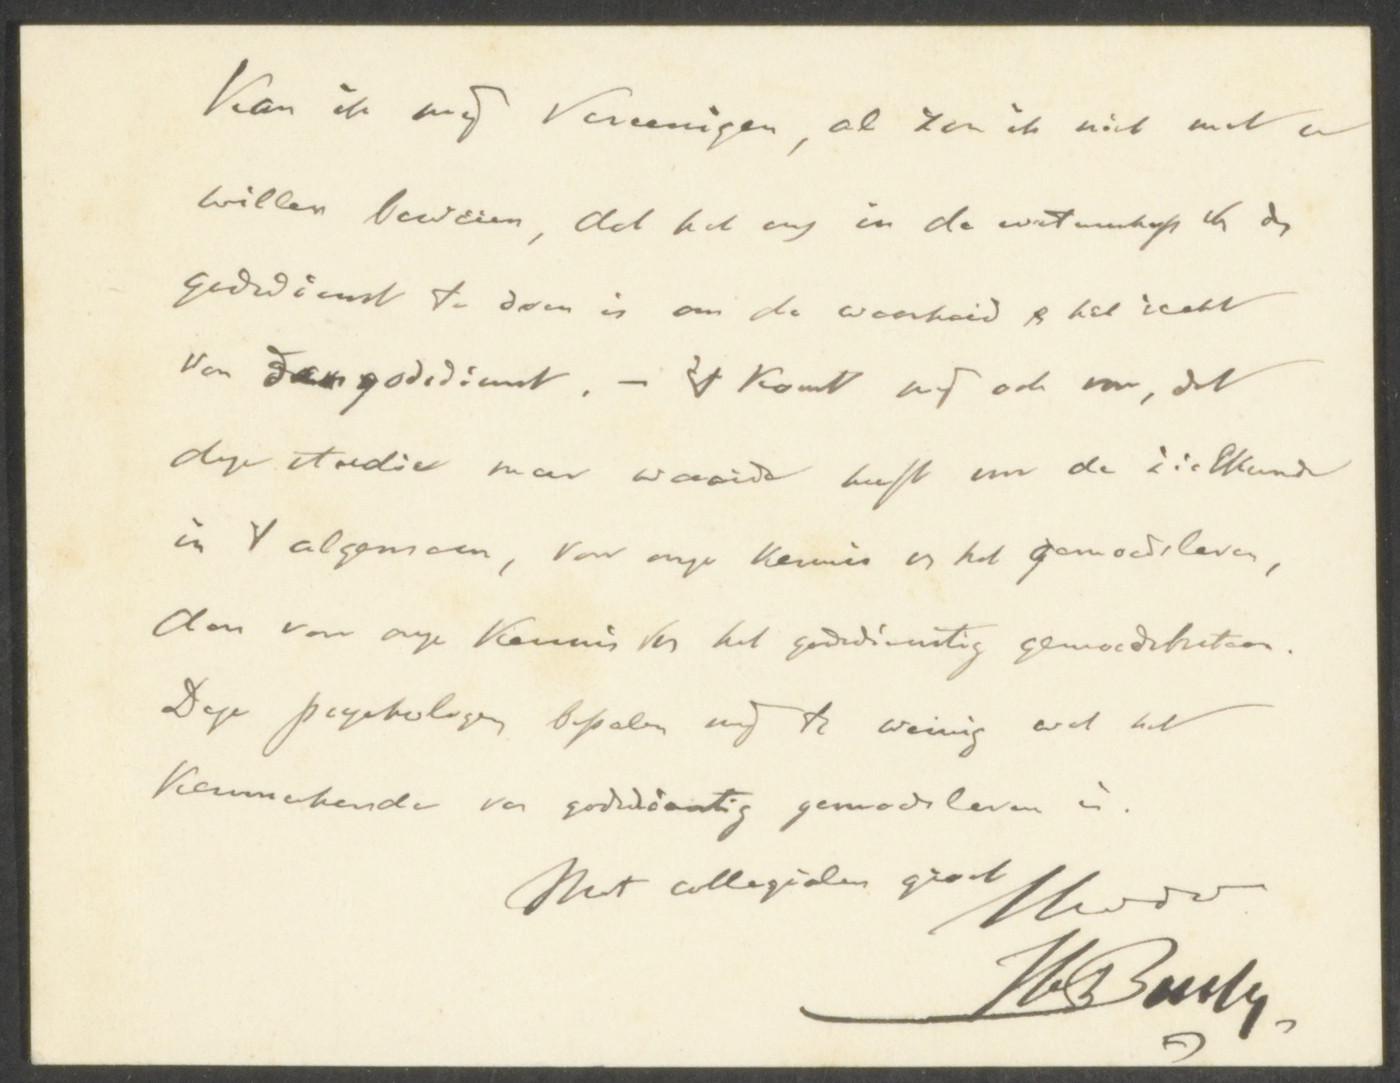 Kan ik mij vereenigen, al zou ik niet met u
willen beweren, dat het ons in de wetenschap v/d
godsdienst te doen is om de waarheid & het recht
van den godsdienst. — 't Komt mij ook voor, dat
deze studie meer waarde heeft voor de zielkunde
in 't algemeen, voor onze kennis v/h het gemoedsleven,
dan voor onze kennis van het godsdienstig gemoedsbestaan.
Deze psychologen bepalen mij te weinig wat het
kenmerkende van godsdienstig gemoedsleven is.
Met collegialen groet